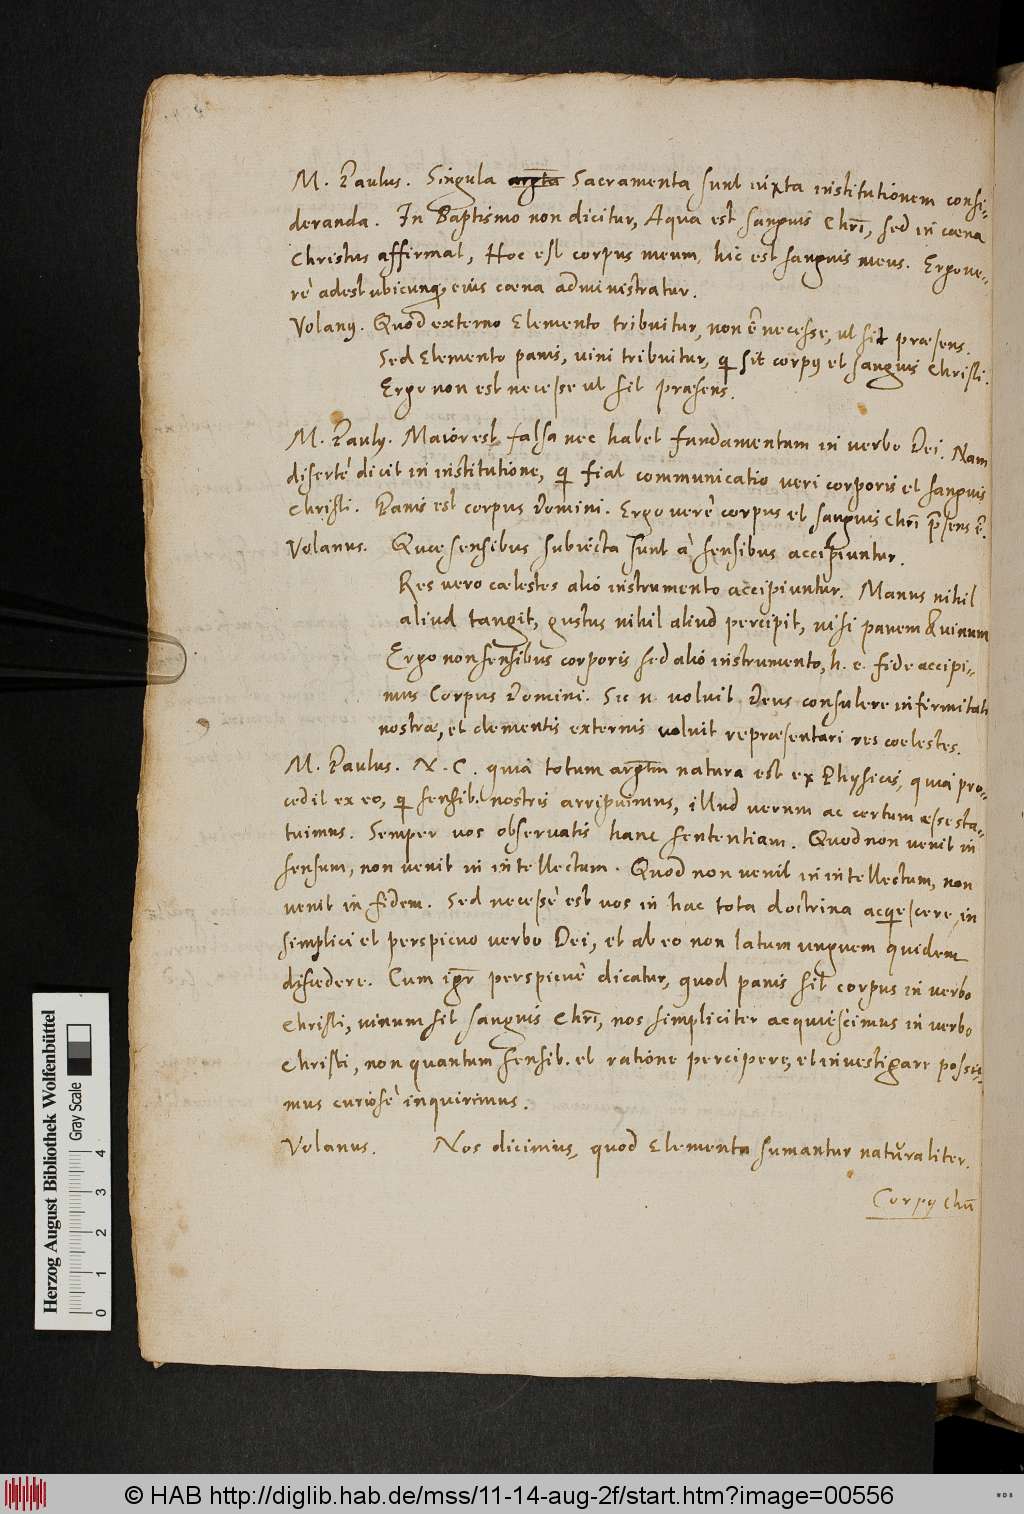 M. Paulus. Singula argta Sacramenta sunt iuxta institutionem consi-
deranda. In Baptismo non dicitur, Aqua est sanguis Chrī, sed in cœna
Christus affirmat, Hoc est corpus meum, hic est sanguis meus. Ergo ve-
rè adest ubicunq, eius cœna administratur.
Volanꝰ. Quod externo Elemento tribuitur, non ē necesse, ut sit præsens.
Sed Elemento panis, vini tribuitur, ꝙ sit corpꝰ et sanguis Christi.
Ergo non est necesse ut sit præsens.
M. Paulꝰ. Maior est falsa nec habet fundamentum in verbo Dei. Nam
disertè dicit in institutione, ꝙ fiat communicatio veri corporis et sanguis
Christi. Panis est corpus Domini. Ergo verè corpus et sanguis Chrī p̄sens ē.
Volanus. Quæ sensibus subiecta sunt à sensibus accipiuntur.
Res vero cælestes alio instrumento accipiuntur. Manus nihil
aliud tangit, gustus nihil aliud percipit, nisi panem & vinum
Ergo non sensibus corporis sed alio instrumento, h. e. fide accipi-
mus Corpus Domini. Sic n. voluit Deus consulere infirmitati
nostræ, et elementis externis voluit repræsentari res cœlestes.
M. Paulus. N. C. quia totum argtm̄ natura est ex Physicis, quia pro-
cedit ex eo, ꝙ sensib. nostris arripuimus, illud verum ac certum esse sta-
tuimus. Semper vos observatis hanc sententiam. Quod non venit in
sensum, non venit in intellectum. Quod non venit in intellectum, non
venit in fidem. Sed necesse est vos in hac tota doctrina acquiescere, in
simplici et perspicuo verbo Dei, et ab eo non latum unguem quidem
discedere. Cum igr̄ perspicuè dicatur, quod panis sit corpus in verbo
Christi, vinum sit sanguis Chrī, nos simpliciter acquiescimus in verbo
Christi, non quantum sensib. et ratione percipere, et investigare possu-
mus curiosè inquirimus.
Volanus. Nos dicimus, quod Elementa sumantur naturaliter.
Corpꝰ Chrī
Herzog August Bibliothek Wolfenbüttel
Gray Scale
0 1 2 3 4
© HAB http://diglib.hab.de/mss/11-14-aug-2f/start.htm?image=00556